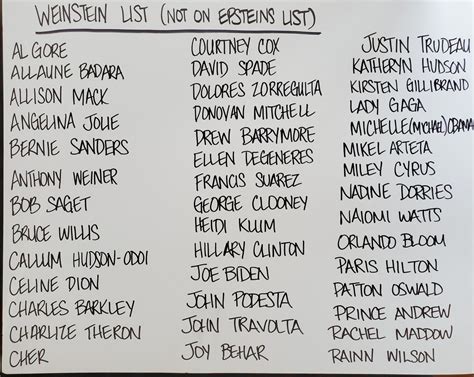 WEINSTEIN LIST (NOT ON EPSTEINS LIST)
AL GORE
ALLAUNE BADARA
ALLISON MACK
ANGELINA JOLIE
BERNIE SANDERS
ANTHONY WEINER
BOB SAGET
BRUCE WILLIS
CALLUM HUDSON-ODOI
CELINE DION
CHARLES BARKLEY
CHARLIZE THERON
CHER
COURTNEY COX
DAVID SPADE
DOLORES ZORREGUITA
DONOVAN MITCHELL
DREW BARRYMORE
ELLEN DEGENERES
FRANCIS SUAREZ
GEORGE CLOONEY
HEIDI KLUM
HILLARY CLINTON
JOE BIDEN
JOHN PODESTA
JOHN TRAVOLTA
JOY BEHAR
JUSTIN TRUDEAU
KATHERYN HUDSON
KIRSTEN GILLIBRAND
LADY GAGA
MICHELLE(MICHAEL)OBAMA
MIKEL ARTETA
MILEY CYRUS
NADINE DORRIES
NAIOMI WATTS
ORLANDO BLOOM
PARIS HILTON
PATTON OSWALD
PRINCE ANDREW
RACHEL MADDOW
RAINN WILSON